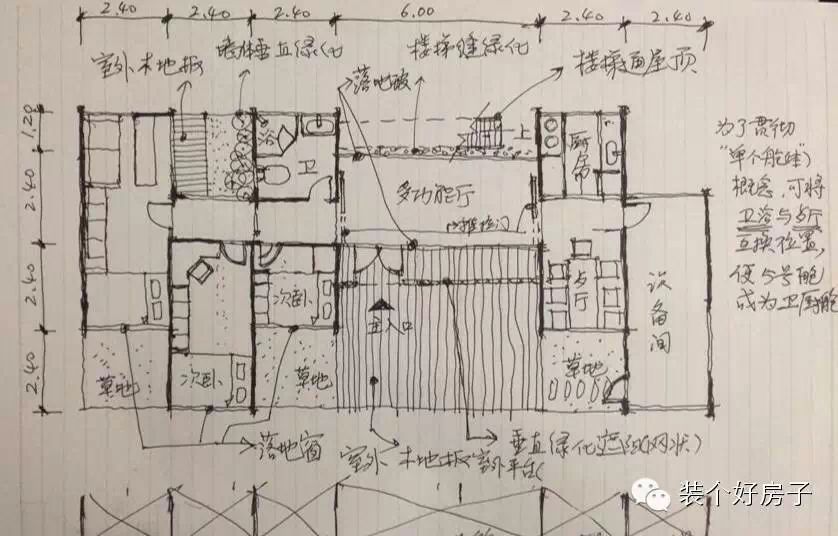 2.40 2.40 2.40 6.00 2.40 2.40
室外木地板
墙体垂直绿化
楼梯缝绿化
楼梯通屋顶
落地玻
1.20
2.40
2.40
2.40
浴
卫
上
厨房
多功能厅
推拉门
为了贯彻
"单个舱体"
概念,可将
卫浴与餐厅
互换位置,
使5号舱
成为卫厨舱
次卧
次卧
主入口
设备间
草地
草地
草地
落地窗
室外木地板
室外平台
垂直绿化遮阳(网状)
装个好房子